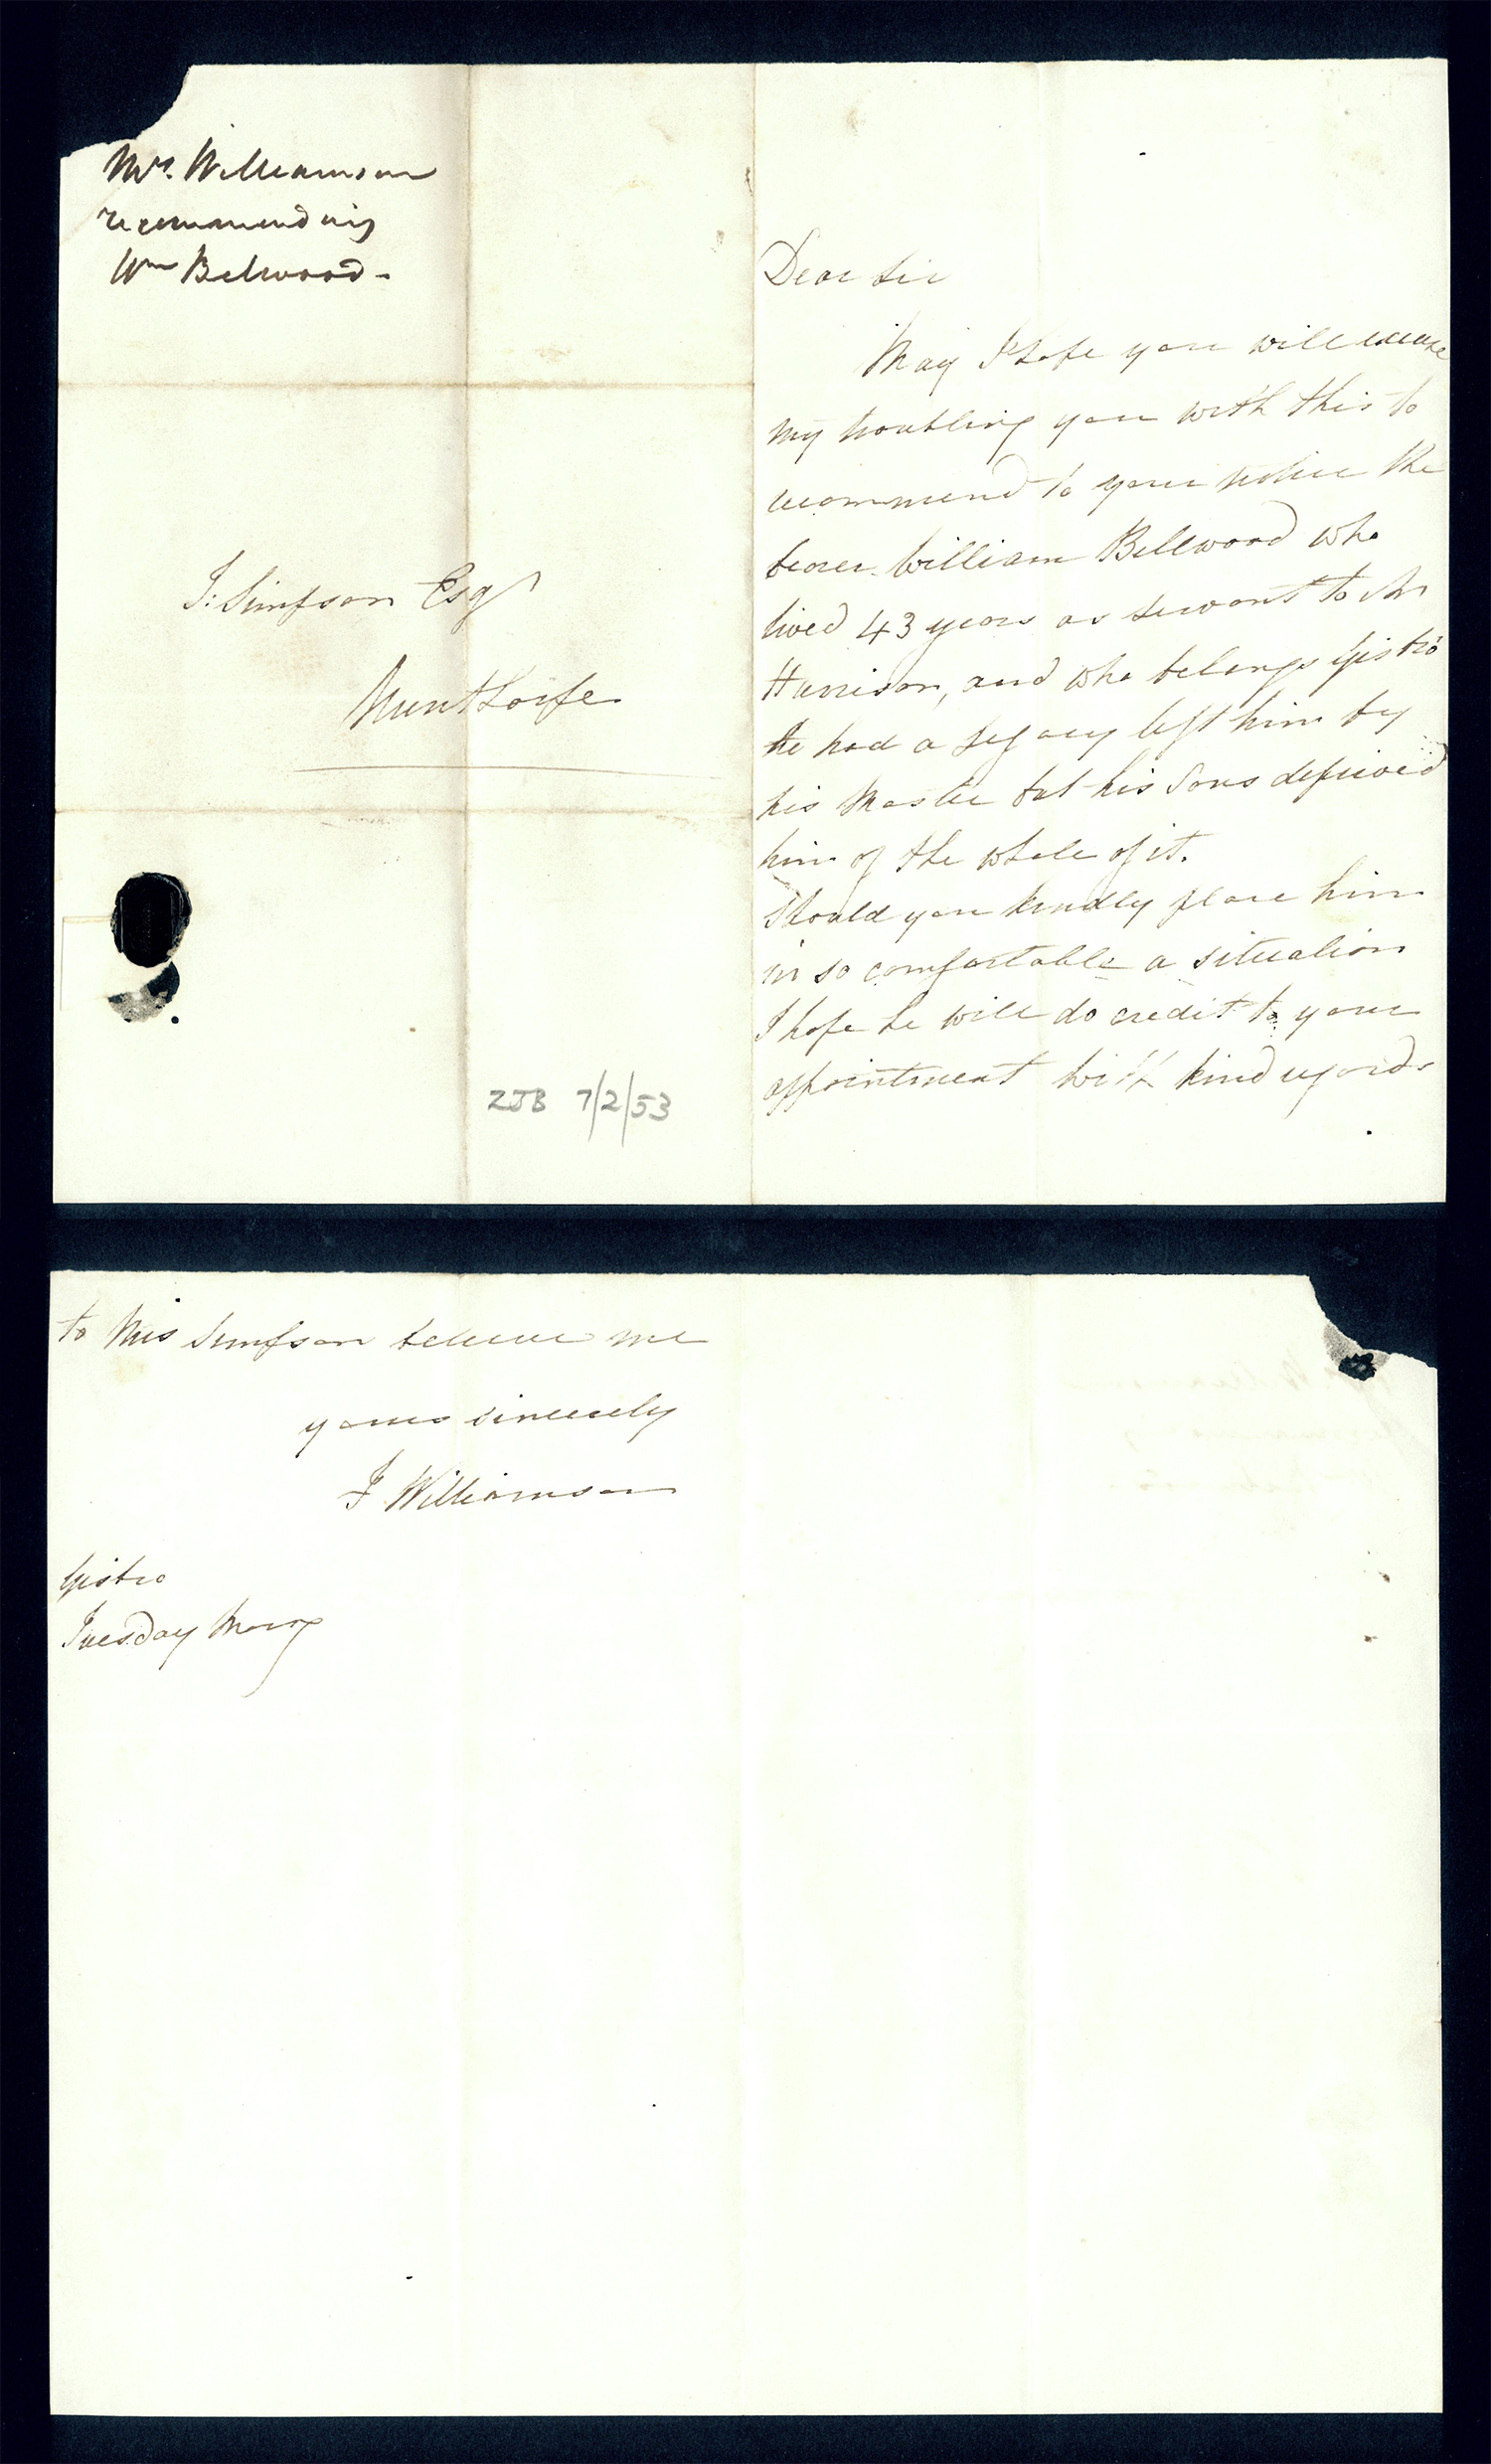 Mrs. Williamson
recommending
Wm Belwood -
J: Simpson Esqr
Nunthorpe
ZJB 7/2/53
Dear Sir
May I hope you will excuse
my troubling you with this to
recommend to your notice the
bearer William Bellwood who
lived 43 years as servant to Mr
Harrison, and who belongs Gisbro
he had a legacy left him by
his Master but his Sons deprived
him of the whole of it.
Should you kindly place him
in so comfortable a situation
I hope he will do credit to your
appointment with kind regards
to Mrs Simpson believe me
yours sincerely
J Williamson
Gisbro
Tuesday Morng